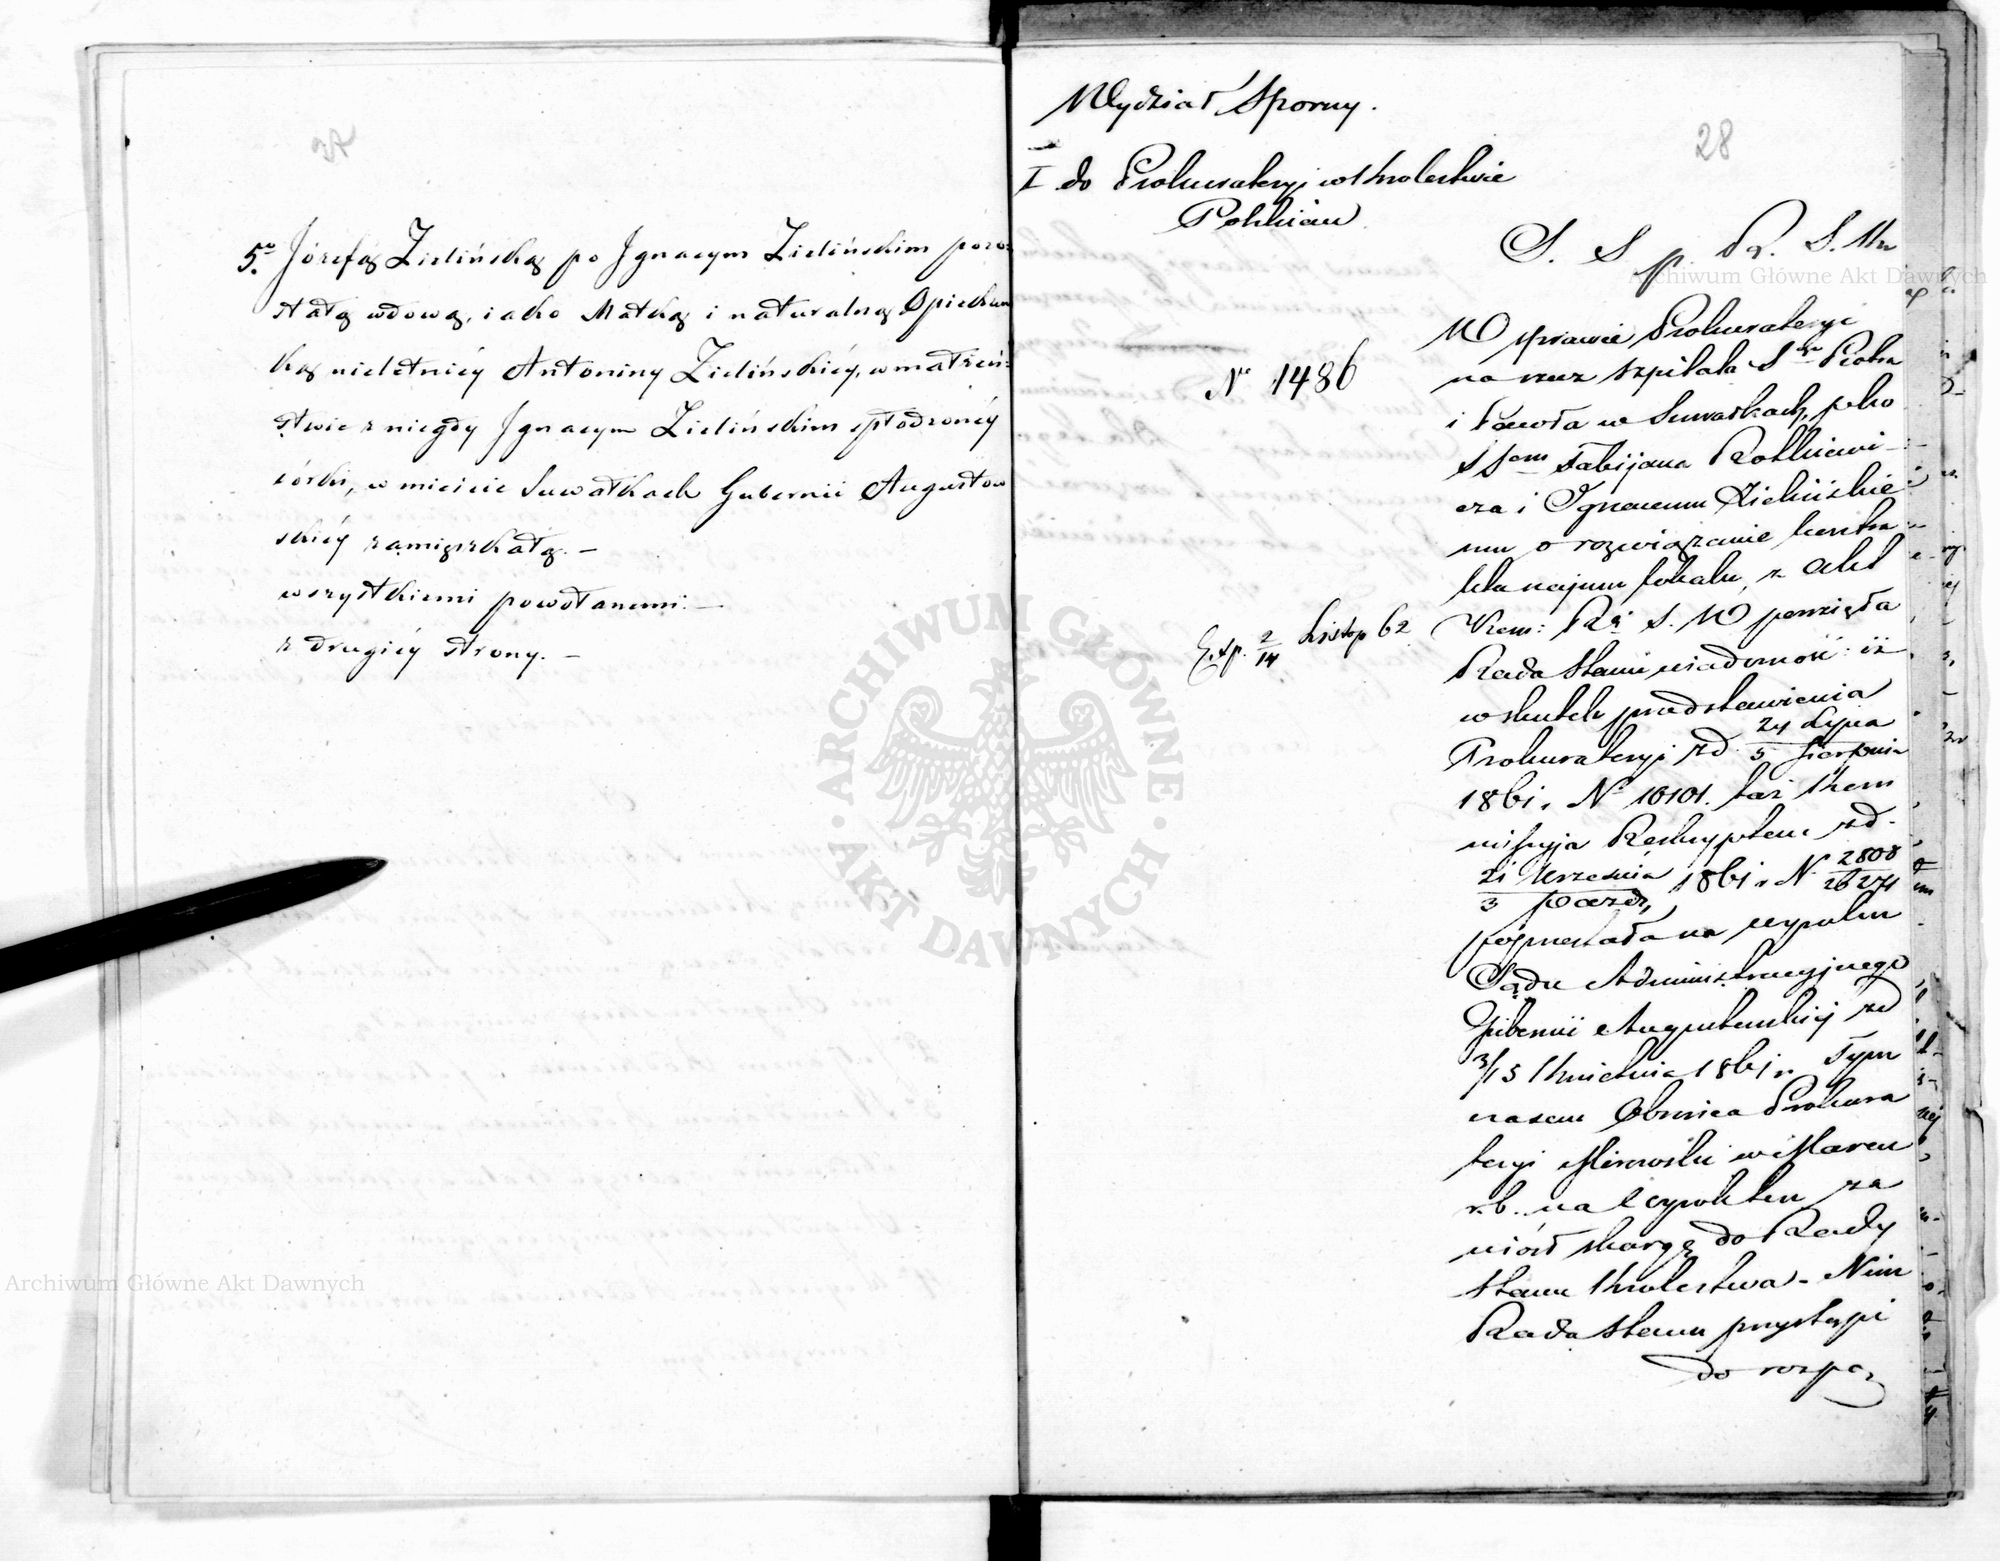 5o Józefą Zielińską po Ignacym Zielińskim pozo-
stałą wdową, iako Matką i naturalną Opiekun
ką nieletniéy Antoniny Zielińskiéy, w małżeń-
stwie z niegdy Ignacym Zielińskim spłodzonéy
córki, w mieście Suwałkach Gubernii Augustow
skiéy zamięszkałą. –
wszystkiemi powołanemi. –
z drugiéy strony. –
28
Wydział Sporny.
I do Prokuratoryi w Krolestwie
Polskiem
S. S p. R. S.
No 1486
Exp. 2/14 Listop 62
W sprawie Prokuratoryi
na rzecz Szpitala Sgo Piotra
i Pawła w Suwałkach, prko
SSom Fabijana Rothiewi-
cza i Ignacemu Zielińskie
mu o rozwiązanie kontra
ktu najmu lokalu, z akt
Kom: Rz. S. W powzięła
Rada Stanu wiadomość iż
w skutek przedstawienia
Prokuratoryi z d. 24 Lipca / 5 Sierpnia
1861 r. No 10101. taż Kom
missyja Reskryptem z d.
21 Września / 3 Paźdz, 1861 r N. 2808 / 26271
poprzestała na wyroku
Sądu Administracyjnego
Gubernii Augustowskiéj z d
3/15 Kwietnia 1861 r. Tym
czasem Obrońca Prokura
toryi Mirowski w Marcu
r. b. na t wyrok ten za
niósł skargę do Rady
Stanu Krolestwa – Nim
Rada Stanu przystąpi
do rozpo,
Archiwum Główne Akt Dawnych
Archiwum Główne Akt Dawnych
ARCHIWUM GŁÓWNE · AKT DAWNYCH ·